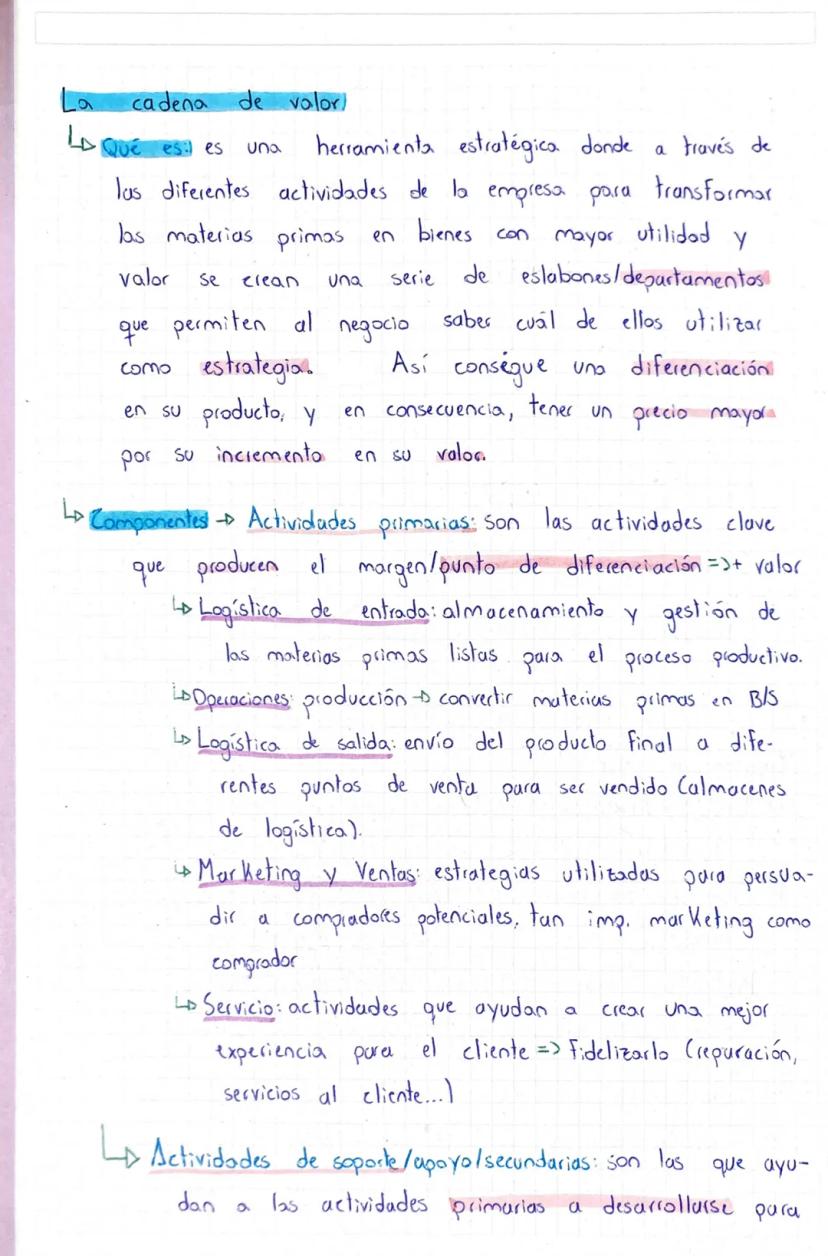 La cadena de valor
↳ Qué es: es una herramienta estratégica donde a través de
las diferentes actividades de la empresa para transformar
las materias primas en bienes con mayor utilidad y
valor se crean una serie de eslabones/departamentos
que permiten al negocio saber cuál de ellos utilizar
como estrategia. Así conségue una diferenciación
en su producto, y en consecuencia, tener un precio mayor
por su incremento en su valor.
↳ Componentes → Actividades primarias: son las actividades clave
que producen el margen/punto de diferenciación => + valor
↳ Logística de entrada: almacenamiento y gestión de
las materias primas listas para el proceso productivo.
↳ Operaciones: producción → convertir materias primas en B/S
↳ Logística de salida: envío del producto final a dife-
rentes puntos de venta para ser vendido (almacenes
de logística).
↳ Marketing y Ventas: estrategias utilizadas para persua-
dir a compradores potenciales, tan imp. marketing como
comprador
↳ Servicio: actividades que ayudan a crear una mejor
experiencia para el cliente => Fidelizarlo (reparación,
servicios al cliente...)
↳ Actividades de soporte/apoyo/secundarias: son las que ayu-
dan a las actividades primarias a desarrollarse para